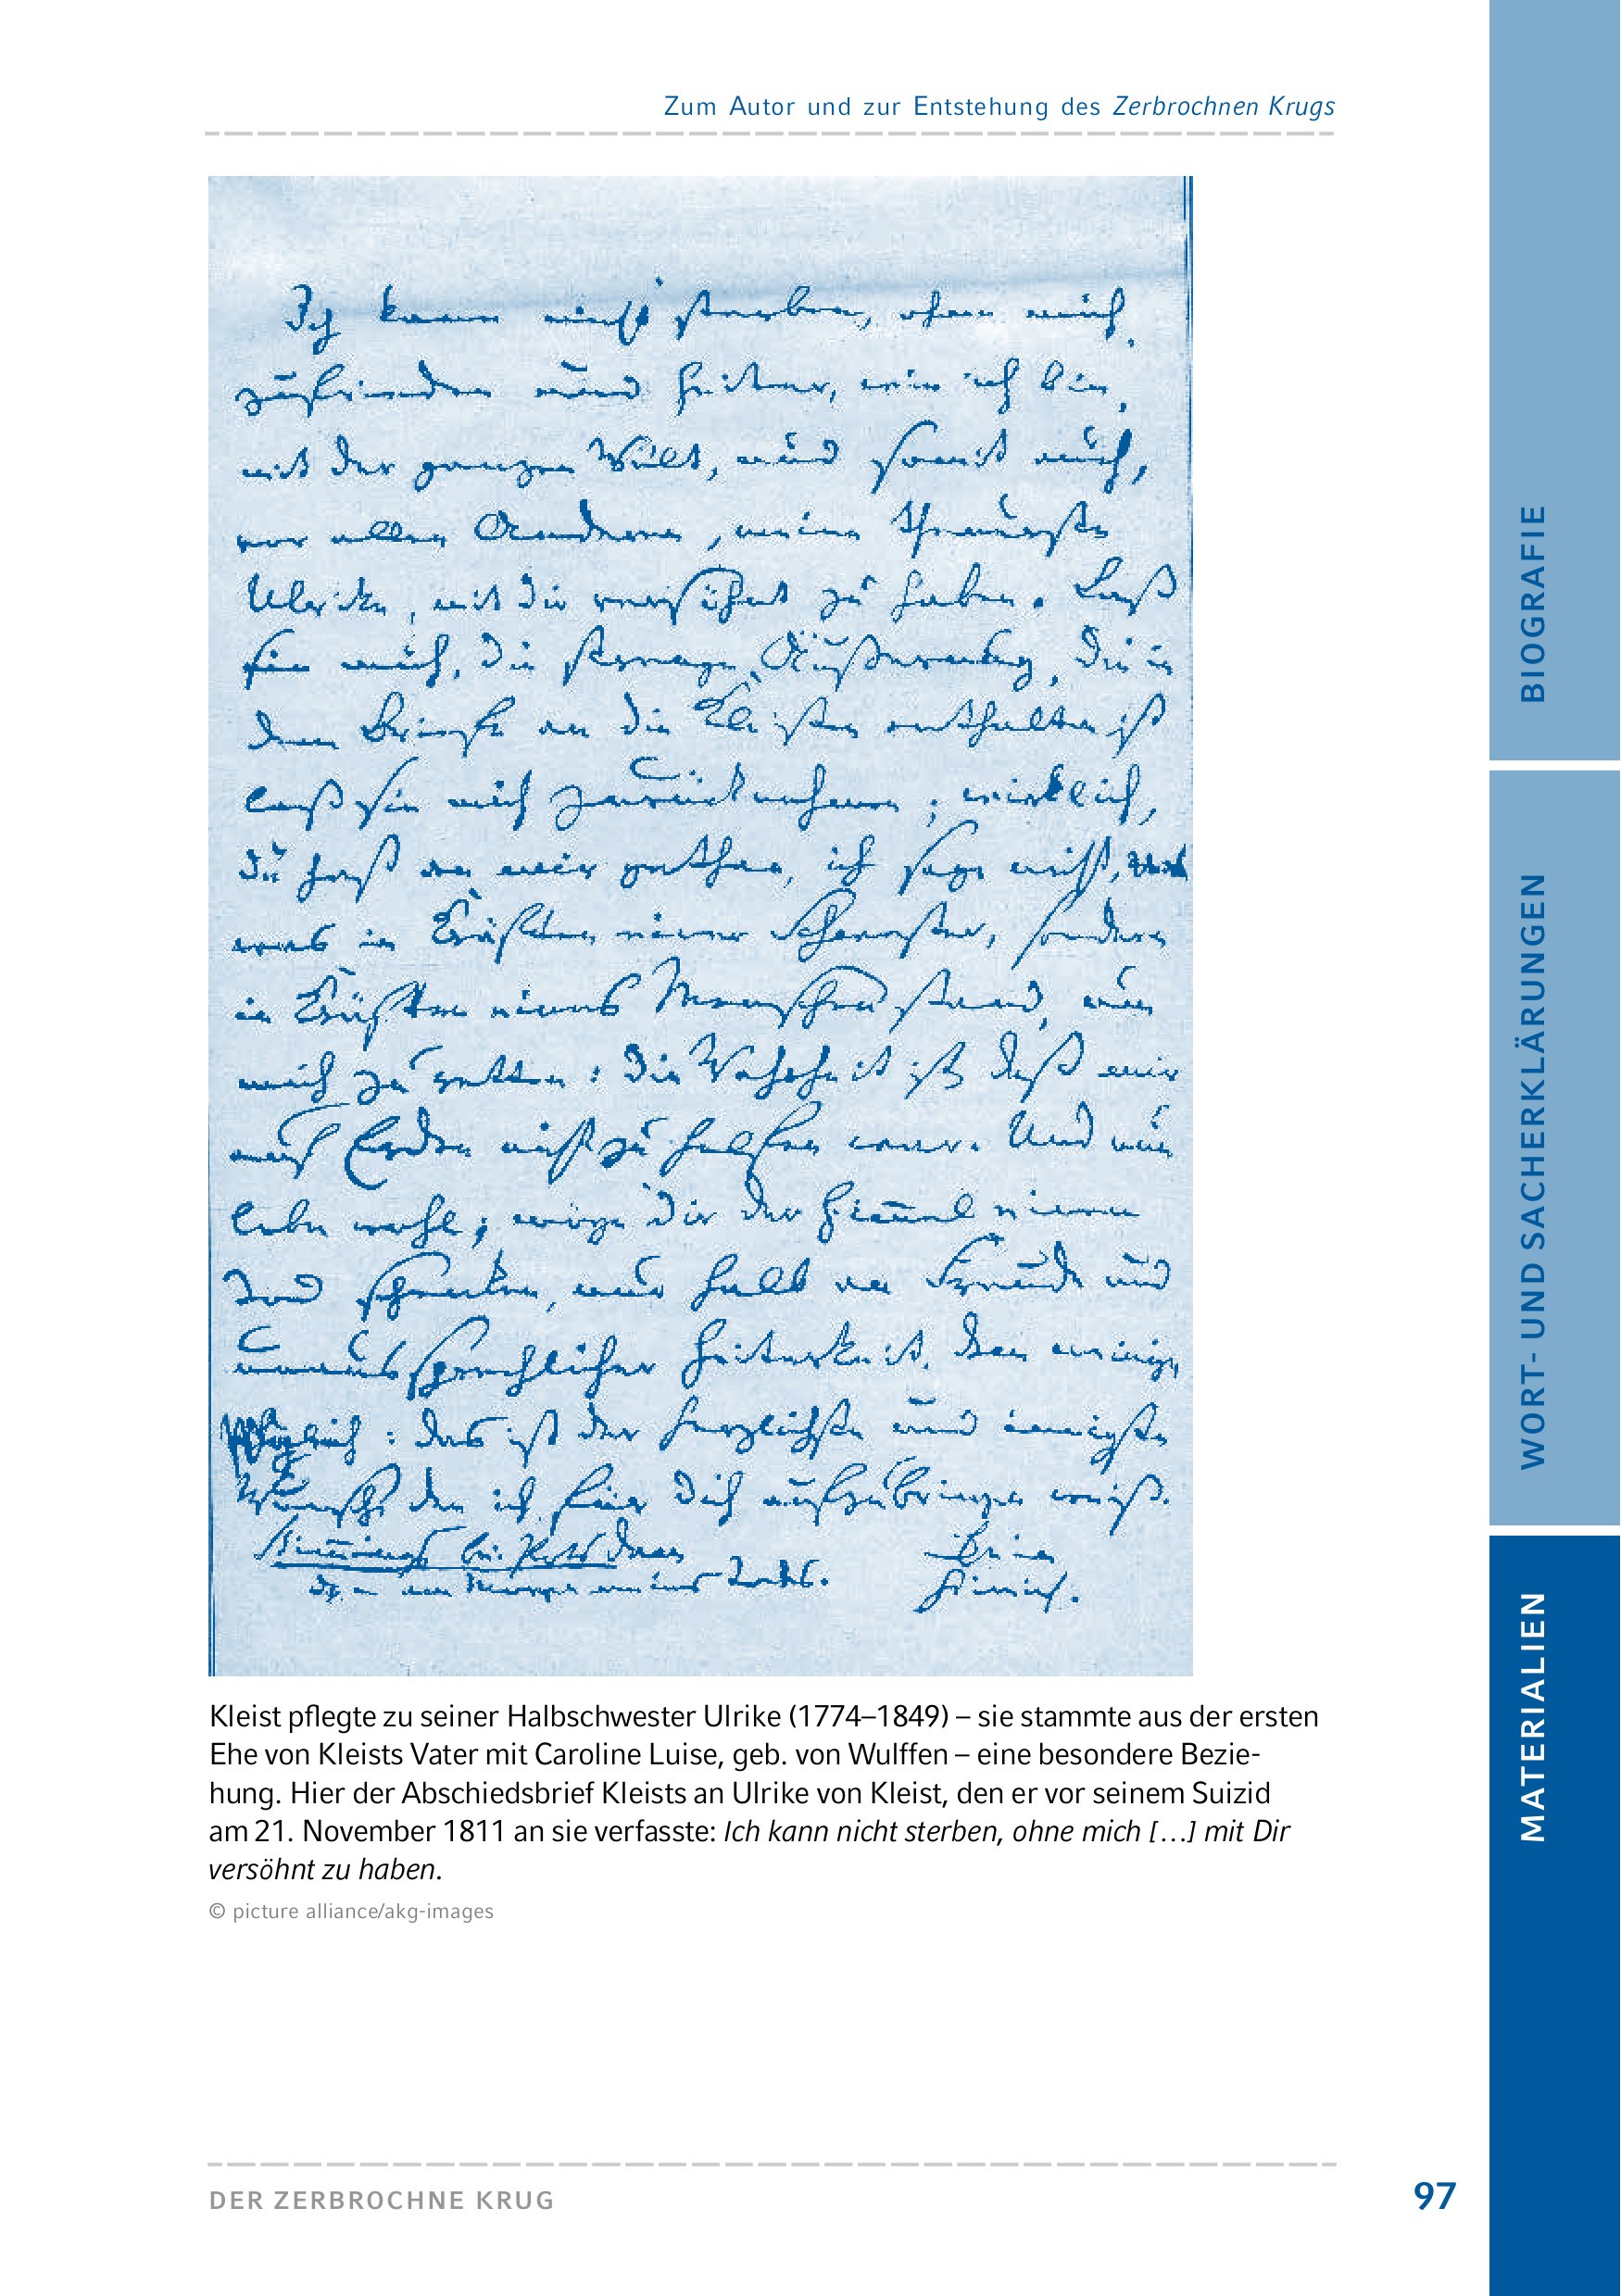 Zum Autor und zur Entstehung des Zerbrochnen Krugs
Ich kann nicht sterben, ohne mich,
zufrieden und heiter, wie ich bin,
mit der ganzen Welt, und somit auch,
vor allen Anderen, meine theuerste
Ulrike, mit dir versöhnt zu haben. Laß
sie mich, die strenge Äußerung, die in
dem Briefe an die Kleisten enthalten ist
laß sie mich zurücknehmen; wirklich,
du hast an mir gethan, ich sage nicht,
was in Kräften einer Schwester, sondern
in Kräften eines Menschen stand, um
mich zu retten: die Wahrheit ist, daß mir
auf Erden nicht zu helfen war. Und nun
lebe wohl; möge dir der Himmel einen
Tod schenken, nur halb an Freude und
unaussprechlicher Heiterkeit, dem meinigen
gleich: das ist der herzlichste und innigste
Wunsch, den ich für dich aufzubringen weiß.
Stimmings bei Potsdam Dein
d. – am Morgen meines Todes. Heinrich.
Kleist pflegte zu seiner Halbschwester Ulrike (1774–1849) – sie stammte aus der ersten
Ehe von Kleists Vater mit Caroline Luise, geb. von Wulffen – eine besondere Bezie-
hung. Hier der Abschiedsbrief Kleists an Ulrike von Kleist, den er vor seinem Suizid
am 21. November 1811 an sie verfasste: Ich kann nicht sterben, ohne mich […] mit Dir
versöhnt zu haben.
© picture alliance/akg-images
DER ZERBROCHNE KRUG
97
BIOGRAFIE
WORT- UND SACHERKLÄRUNGEN
MATERIALIEN